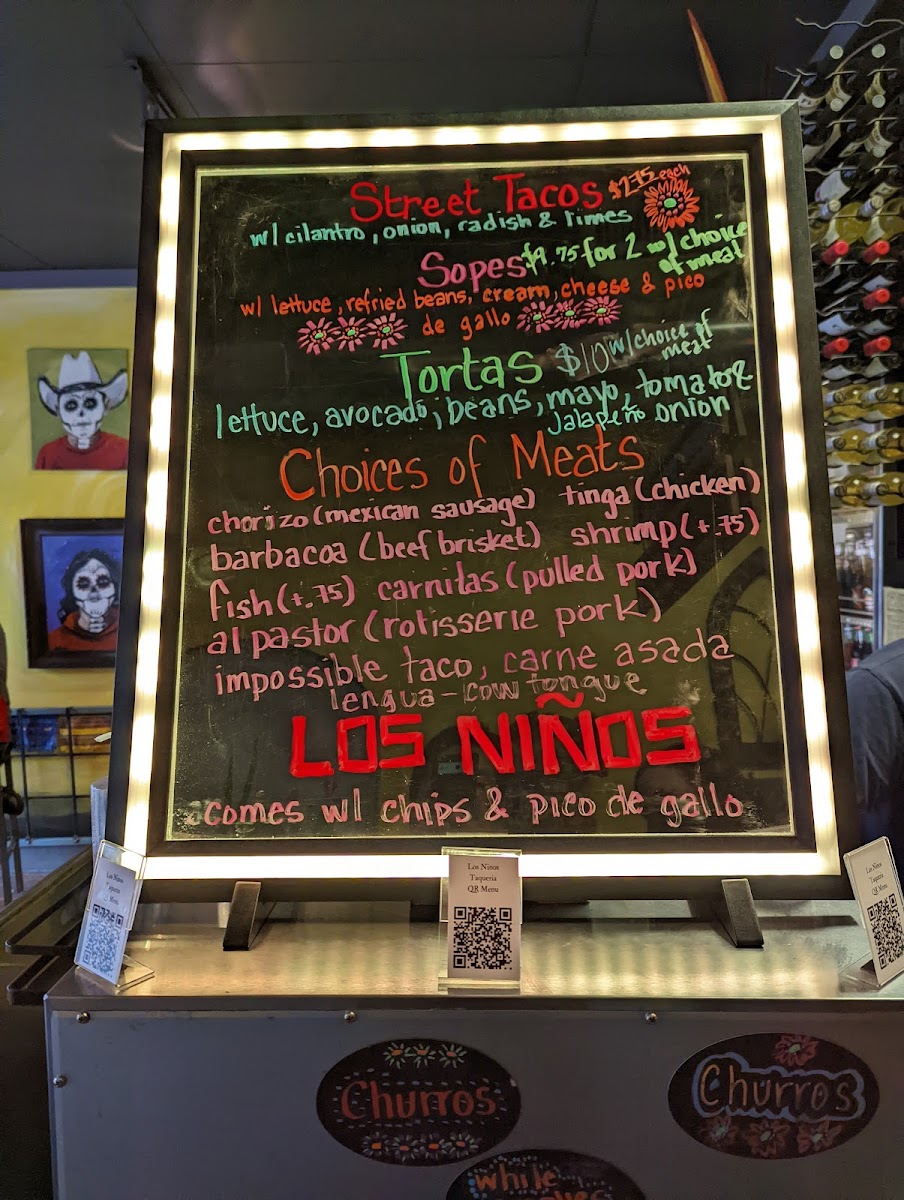 Street Tacos $2.75 each
w/ cilantro, onion, radish & limes
Sopes $9.75 for 2 w/ choice
of meat
w/ lettuce, refried beans, cream, cheese & pico
de gallo
Tortas $10 w/ choice of
meat
lettuce, avocado, beans, mayo, tomato &
Jalapeño onion
Choices of Meats
chorizo (mexican sausage) tinga (chicken)
barbacoa (beef brisket) shrimp (+.75)
fish (+.75) carnitas (pulled pork)
al pastor (rotisserie pork)
impossible taco, carne asada
lengua - cow tongue
LOS NIÑOS
comes w/ chips & pico de gallo
Los Ninos
Taqueria
QR Menu
Los Ninos
Taqueria
QR Menu
Los Ninos
Taqueria
QR Menu
Churros
Churros
while